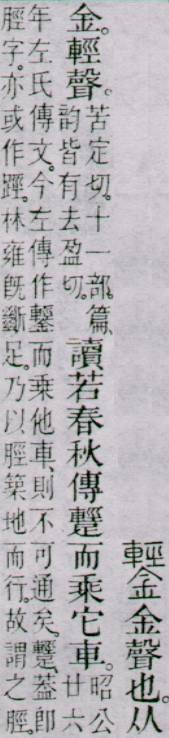 鑋金聲也。从
金。輕聲。苦定切。十一部。篇、韵皆有去盈切。讀若春秋傳𨇯而乘它車。昭公廿六
年左氏傳文。今左傳作鑋而乘他車、則不可通矣。𨇯、葢卽
脛字。亦或作踁。林雍旣斷足。乃以脛築地而行。故謂之脛。